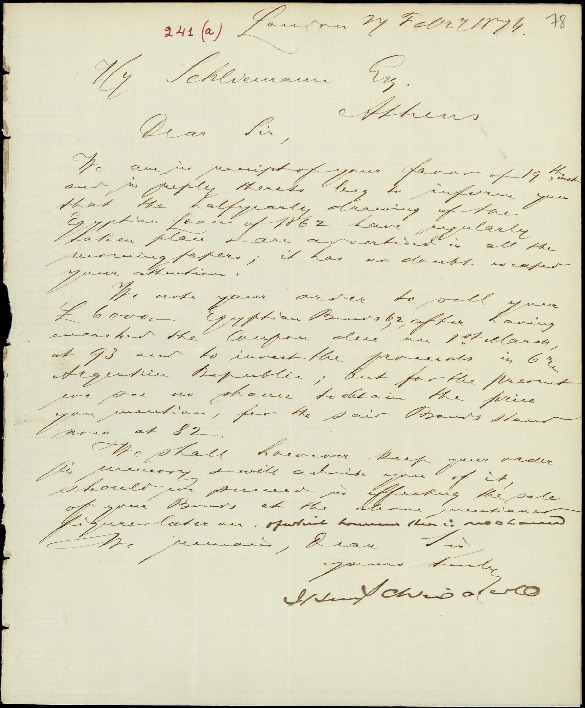 241 (a)
London 27 Febr. 1874.
78
Hy Schliemann Esq.
Athens
Dear Sir,
We are in receipt of your favor of 19th inst.
and in reply thereto beg to inform you
that the halfyearly drawing of the
Egyptian Loan of 1862 have regularly
taken place & are advertised in all the
morning papers; it has no doubt escaped
your attention.
We note your order to sell your
£ 6000.- Egyptian Bonds 62, after having
the Coupon due on 1st March,
at 93 and to invest the proceeds in 6%
Argentine Republic; but for the present
we see no chance to obtain the price
you mention, for the said Bonds stand
now at 82.
We shall however keep your order
in memory & will advise you of it,
should we succeed in effecting the sale
of your Bonds at the above mentioned
figure later on. of which however there is no chance
We remain, Dear Sir,
yours truly
J Henry Schröder & Co